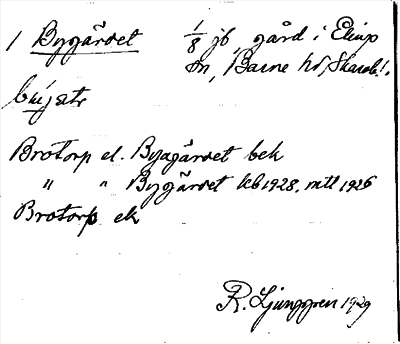 1 Bygärdet 1/8 jb, gård i Elings
sn, Barne hd, Skarab. l.
býjatr
Brotorp el. Byagärdet bek
" " Bygärdet kb 1928, mtl 1926
Brotorp ek
R. Ljunggren 1929